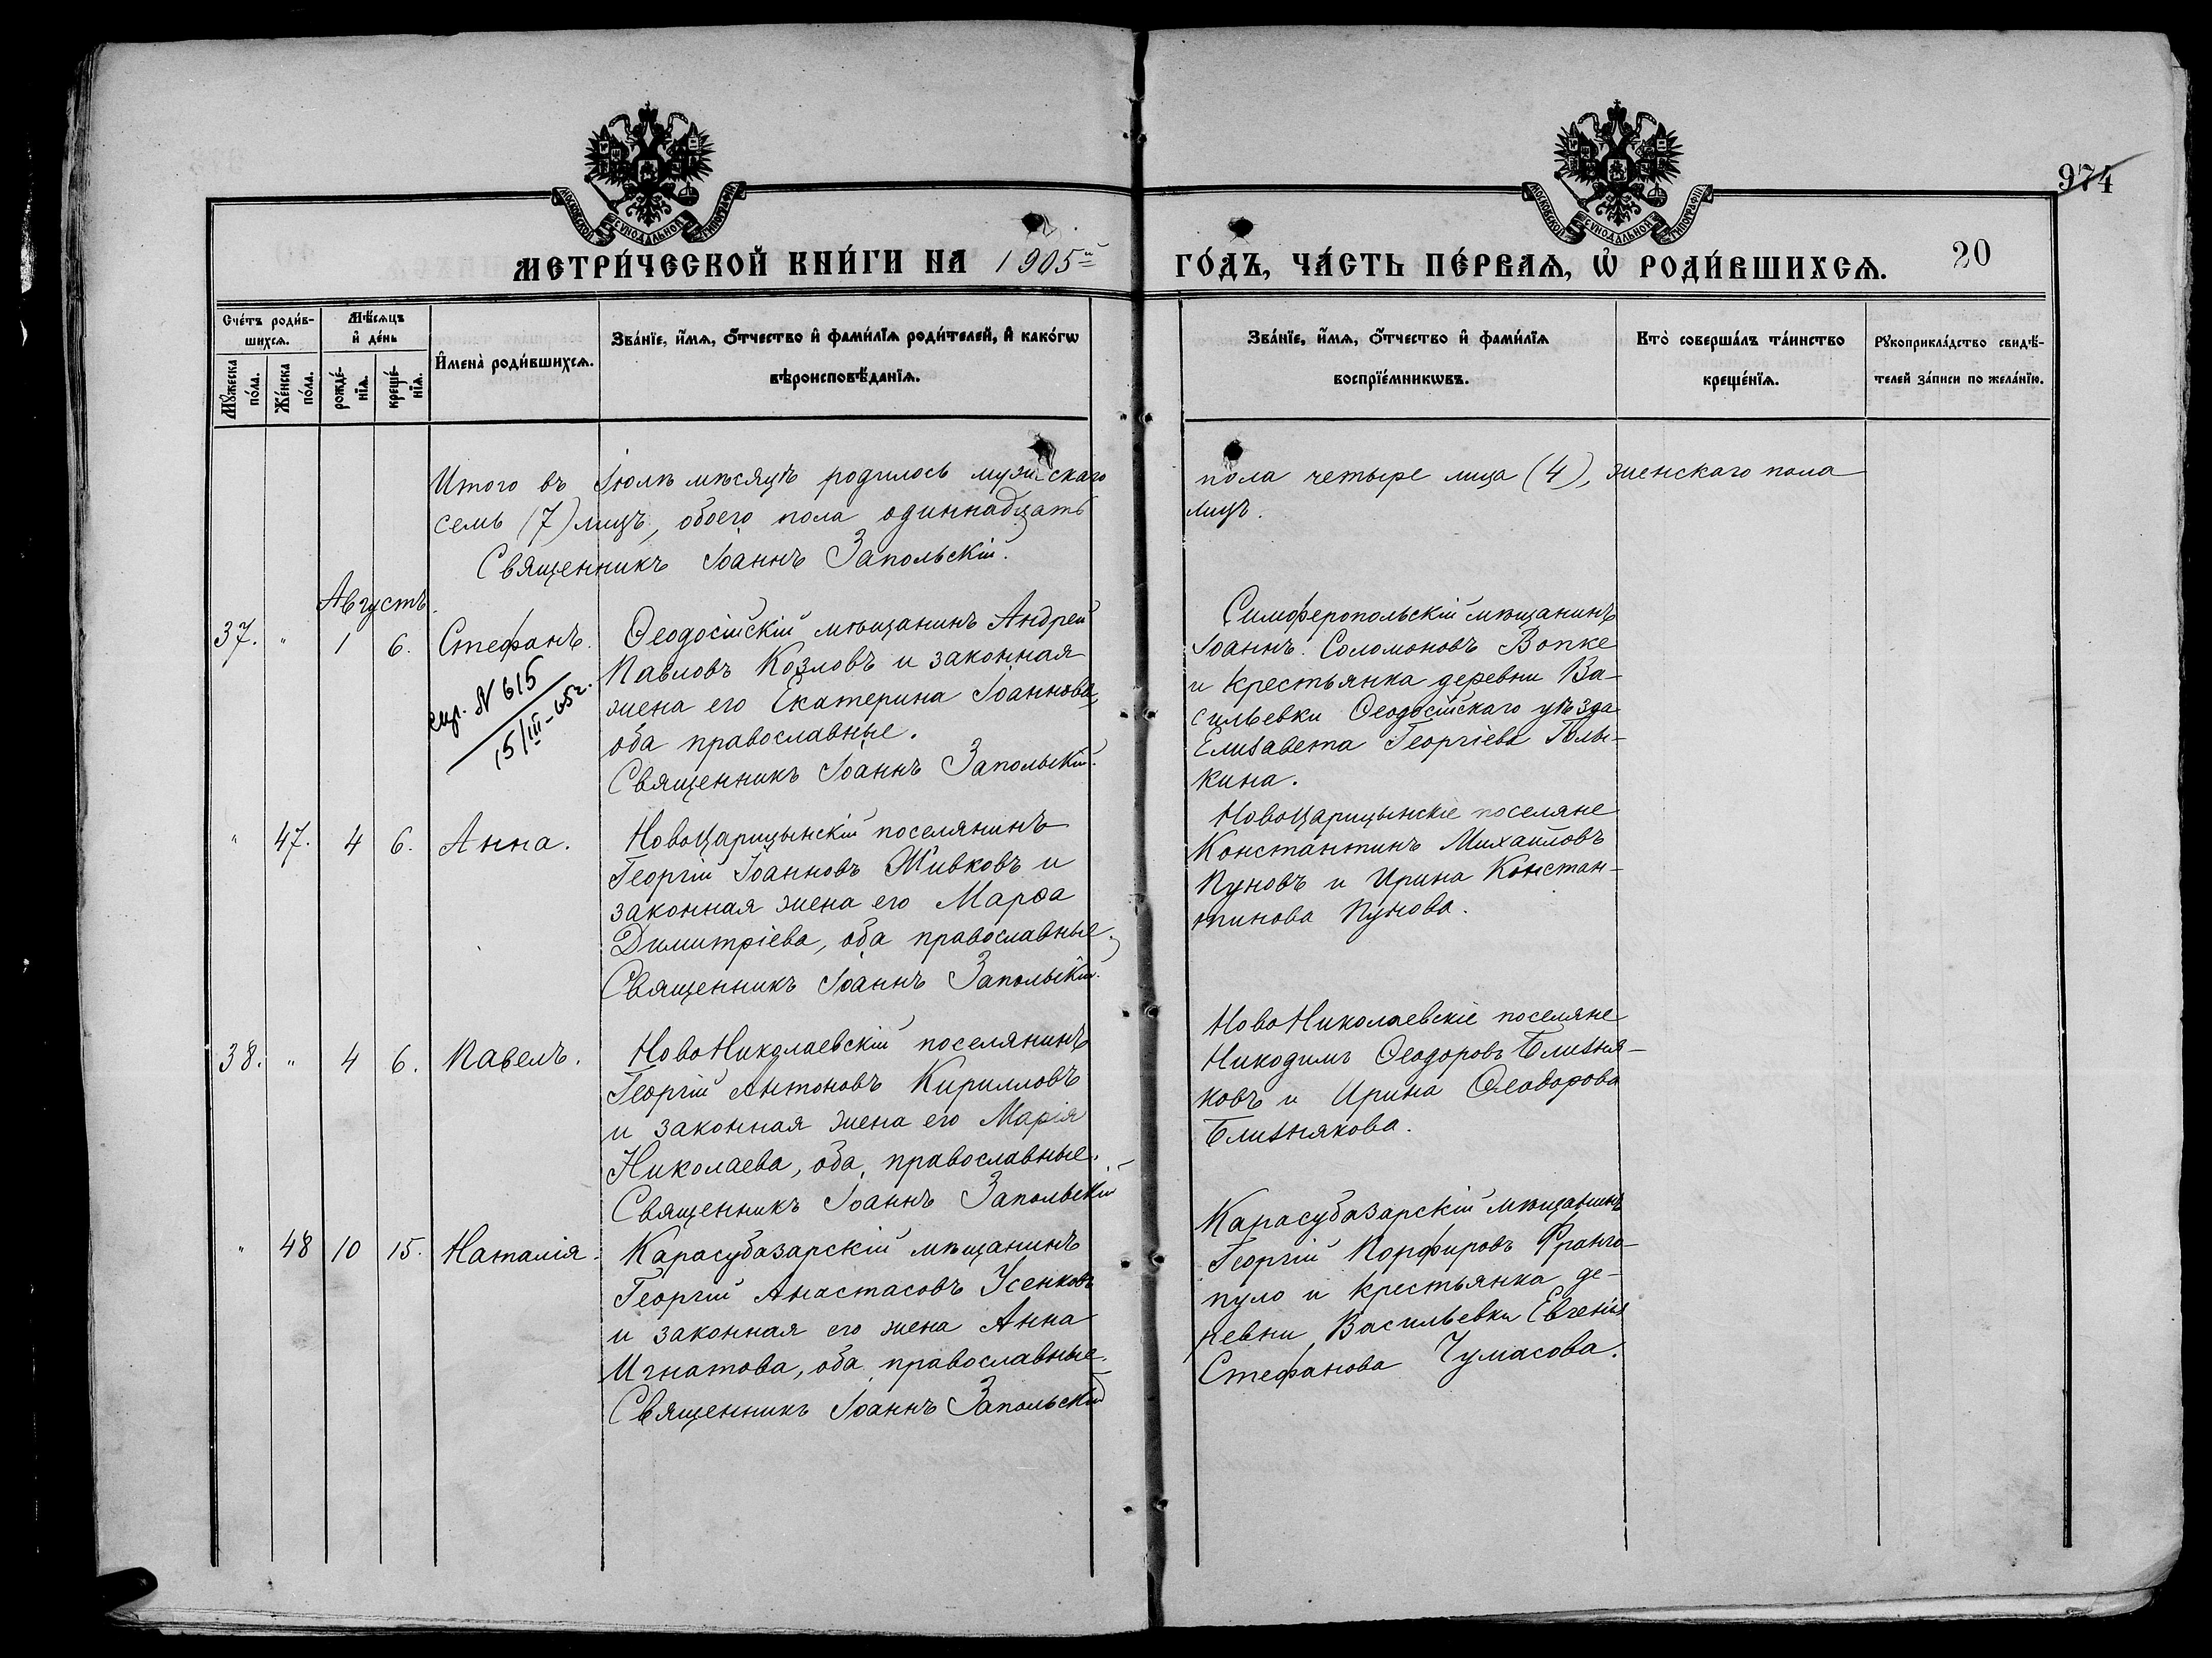 974
МОСКОВСКОЙ СѴНОДАЛЬНОЙ ТИПОГРАФІИ
МОСКОВСКОЙ СѴНОДАЛЬНОЙ ТИПОГРАФІИ
МЕТРИ́ЧЕСКОЙ КНИ́ГИ НА 1905й ГО́ДЪ, ЧА́СТЬ ПЕ́РВАѦ, Ѡ҆ РОДИ́ВШИХСѦ. 20
Сче́тъ роди́в-
шихсѧ.
Мѣ́сѧцъ
и҆ де́нь
Мꙋ́жеска по́ла.
Же́нска по́ла.
рожде́-нїѧ.
креще́-нїѧ.
И҆мена̀ роди́вшихсѧ.
Зва́нїе, и҆́мѧ, ѻ҆́тчество и҆ фами́лїѧ роди́телей, и҆ како́гѡ
вѣроисповѣ́данїѧ.
Зва́нїе, и҆́мѧ, ѻ҆́тчество и҆ фами́лїѧ
воспрїе́мникѡвъ.
Кто̀ соверша́лъ та́инство
креще́нїѧ.
Рꙋкоприкла́дство свидѣ́-
телей за́писи по жела́нїю.
Итого въ Іюлѣ мѣсяцѣ родилось мужскаго пола четыре лица (4), женскаго пола
семь (7) лицъ, обоего пола одиннадцать лицъ.
Священникъ Іоаннъ Запольскій.
Августъ.
37. " 1 6. Стефанъ.
№ 615
15/III-65г.
Ѳеодосійскій мѣщанинъ Андрей
Павловъ Козловъ и законная
жена его Екатерина Іоаннова,
оба православные.
Священникъ Іоаннъ Запольскій.
Симферопольскій мѣщанинъ
Іоаннъ Соломоновъ Вопке
и крестьянка деревни Ва-
сильевки Ѳеодосійскаго уѣзда
Елизавета Георгіева Голы-
кина.
" 47. 4 6. Анна.
НовоЦарицынскій поселянинъ
Георгій Іоанновъ Живковъ и
законная жена его Марѳа
Димитріева, оба православные.
Священникъ Іоаннъ Запольскій.
НовоЦарицынскіе поселяне
Константинъ Михаиловъ
Пуновъ и Ирина Констан-
тинова Пунова.
38. " 4 6. Павелъ.
НовоНиколаевскій поселянинъ
Георгій Антоновъ Кирилловъ
и законная жена его Марія
Николаева, оба православные.
Священникъ Іоаннъ Запольскій
НовоНиколаевскіе поселяне
Никодимъ Ѳеодоровъ Близня-
ковъ и Ирина Ѳеодорова
Близнякова.
" 48 10 15. Наталія.
Карасубазарскій мѣщанинъ
Георгій Анастасовъ Усенковъ
и законная его жена Анна
Игнатова, оба православные.
Священникъ Іоаннъ Запольскій
Карасубазарскій мѣщанинъ
Георгій Порфировъ Франго-
пуло и крестьянка де-
ревни Васильевки Евгенія
Стефанова Чумасова.